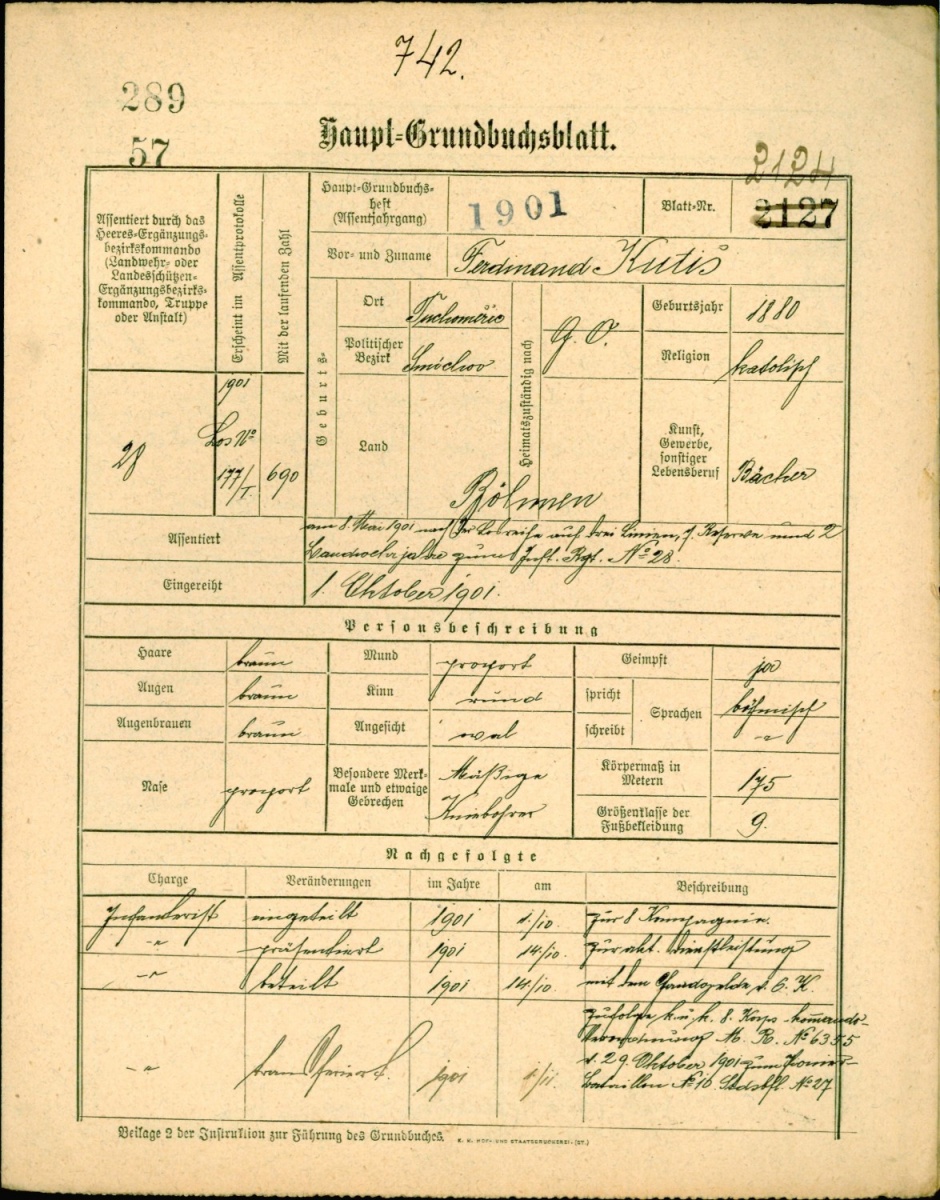 742.
289
57
Haupt-Grundbuchsblatt.
2124
2127
Assentiert durch das
Heeres-Ergänzungs-
bezirkskommando
(Landwehr- oder
Landesschützen-
Ergänzungsbezirks-
kommando, Truppe
oder Anstalt)
Erscheint im Assentprotokolle
Mit der laufenden Zahl
Haupt-Grundbuchs-
heft
(Assentjahrgang)
1901
Blatt-Nr.
Vor- und Zuname
Ferdinand Kutiš
Geburts-
Ort
Tuchoměřic
Politischer
Bezirk
Smíchov
Land
Böhmen
Heimatszuständig nach
G. O.
Geburtsjahr
1880
Religion
katolisch
Kunst,
Gewerbe,
sonstiger
Lebensberuf
Bäcker
28
1901
Los No
177/I.
690
Assentiert
am 8. Mai 1901 nach der Losreihe auf drei Linien, 7 Reserve und 2
Landwehrjahre zum Inft. Rgt. No 28.
Eingereiht
1. Oktober 1901.
Personsbeschreibung
Haare
braun
Mund
proport
Geimpft
ja
Augen
braun
Kinn
rund
spricht
schreibt
Sprachen
böhmisch
-"-
Augenbrauen
braun
Angesicht
oval
Nase
proport
Besondere Merk-
male und etwaige
Gebrechen
Mäßige
Kniebohrer
Körpermaß in
Metern
175
Größenklasse der
Fußbekleidung
9.
Nachgefolgte
Charge
Veränderungen
im Jahre
am
Beschreibung
Infanterist eingeteilt 1901 1./10. zur 8 Kompagnie.
-"- präsentiert 1901 14./10. zur akt. Dienstleistung
-"- beteilt 1901 14./10. mit dem Handgelde v. 6. K.
-"- transferiert. 1901 1/11.
zufolge k. u. k. 8. Korps-kommando-
Verordnung M. R. No 6355
v. 29. Oktober 1901 zum Pionier-
Bataillon No 10 Grdbbl. No 27
Beilage 2 der Instruktion zur Führung des Grundbuches.
K. K. HOF- UND STAATSDRUCKEREI. (ST.)